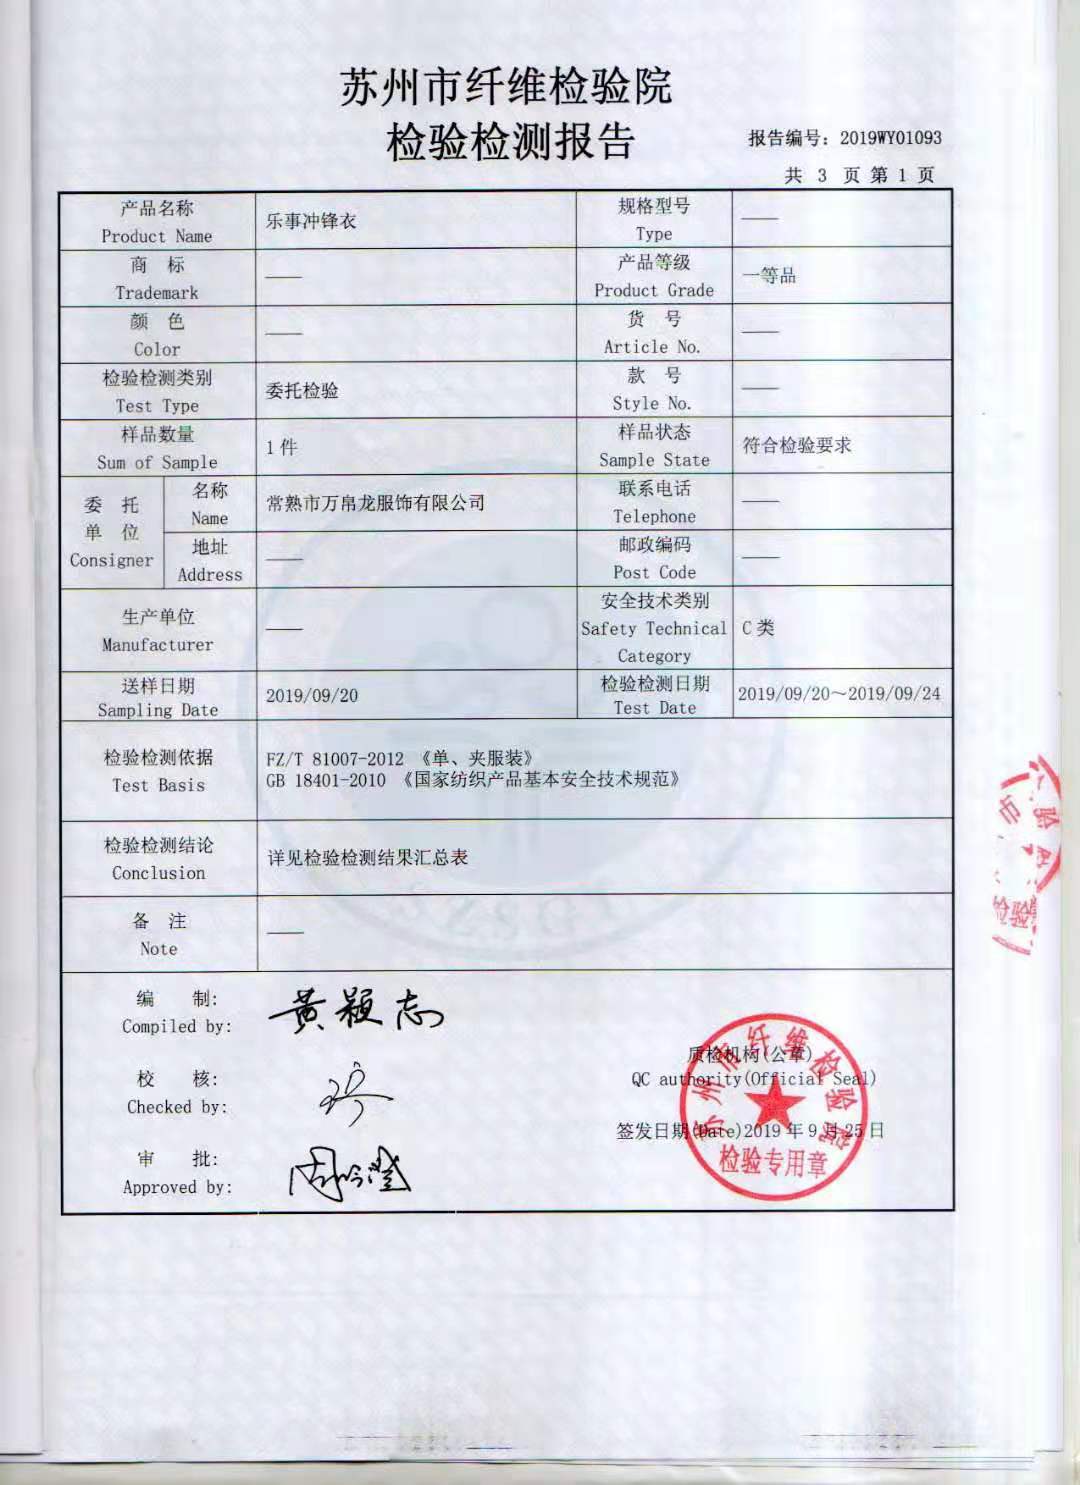 苏州市纤维检验院
检验检测报告
报告编号：2019WY01093
共 3 页 第 1 页
产品名称
Product Name
乐事冲锋衣
规格型号
Type
——
商 标
Trademark
——
产品等级
Product Grade
一等品
颜 色
Color
——
货 号
Article No.
——
检验检测类别
Test Type
委托检验
款 号
Style No.
——
样品数量
Sum of Sample
1 件
样品状态
Sample State
符合检验要求
委 托
单 位
Consigner
名称
Name
常熟市万帛龙服饰有限公司
联系电话
Telephone
——
地址
Address
——
邮政编码
Post Code
——
生产单位
Manufacturer
——
安全技术类别
Safety Technical
Category
C 类
送样日期
Sampling Date
2019/09/20
检验检测日期
Test Date
2019/09/20～2019/09/24
检验检测依据
Test Basis
FZ/T 81007-2012 《单、夹服装》
GB 18401-2010 《国家纺织产品基本安全技术规范》
检验检测结论
Conclusion
详见检验检测结果汇总表
备 注
Note
——
编 制:
Compiled by:
黄颖志
校 核:
Checked by:
审 批:
Approved by:
质检机构(公章)
QC authority(Official Seal)
签发日期(Date)2019 年 9 月 25 日
苏州市纤维检验院
检验专用章
市
验
检验